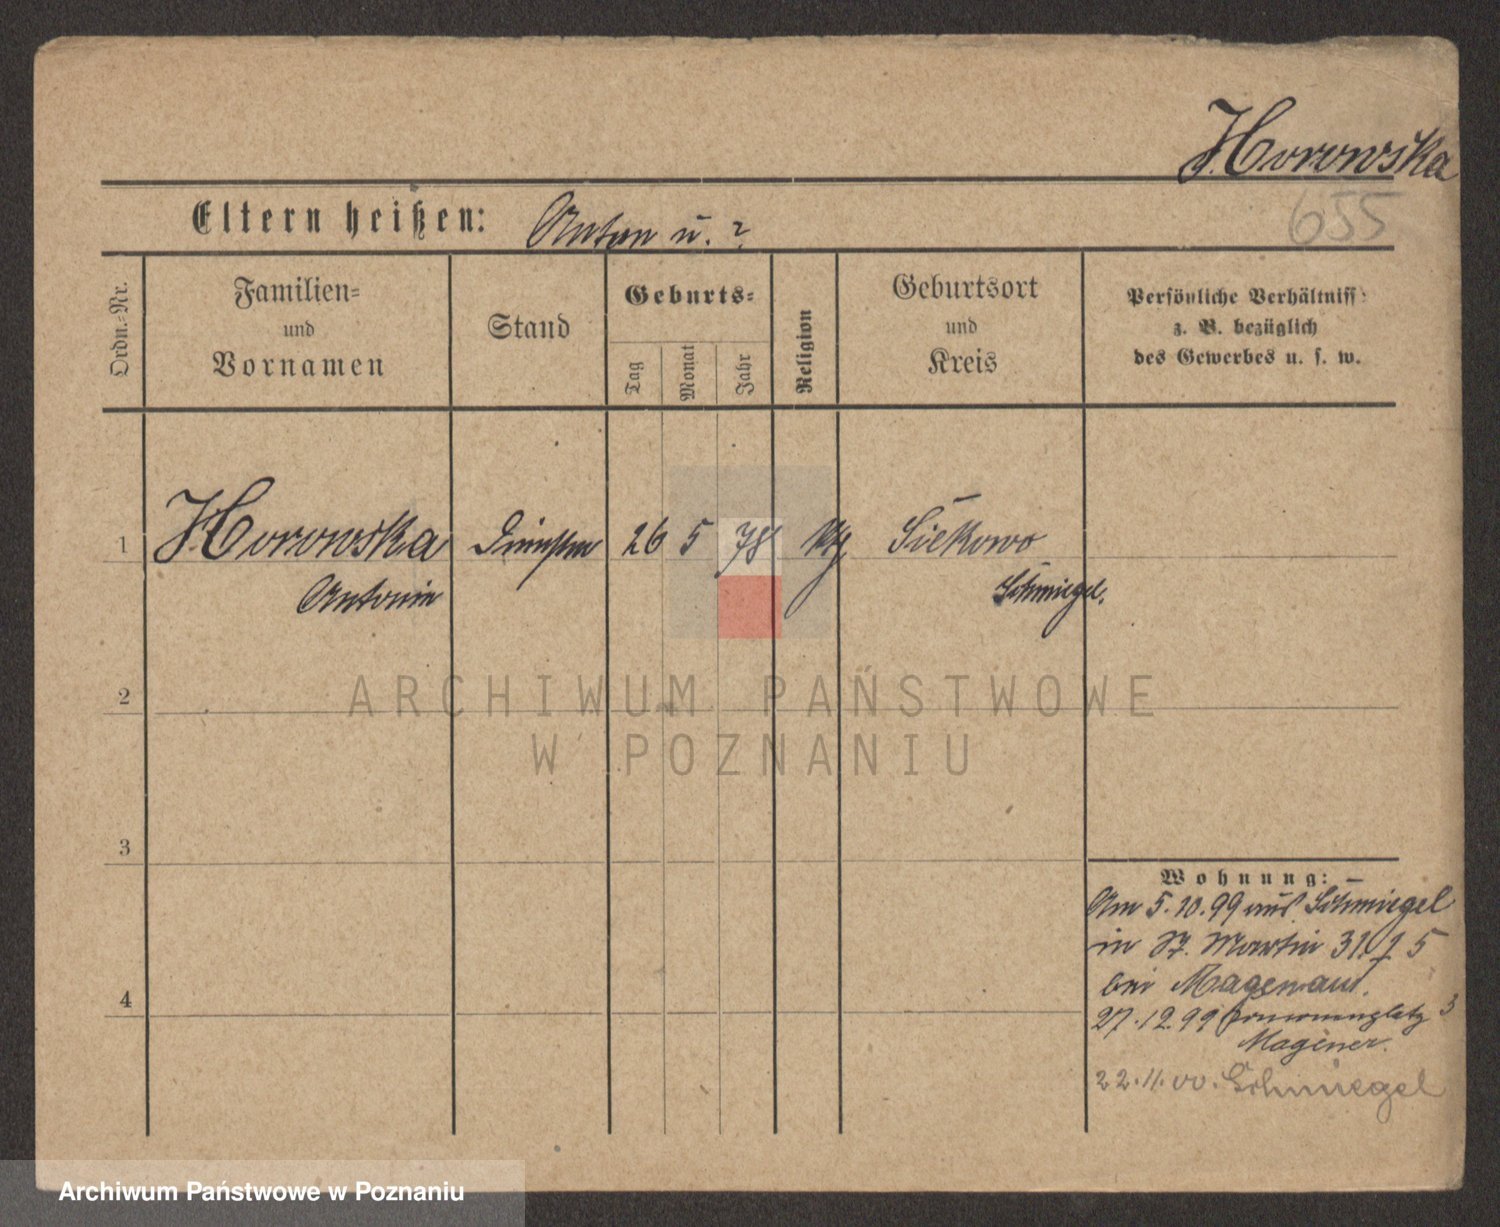 Horowska
655
Eltern heißen: Anton u. ?
Ordn.-Nr.
Familien-
und
Vornamen
Stand
Geburts-
Tag
Monat
Jahr
Religion
Geburtsort
und
Kreis
Persönliche Verhältniss
z. B. bezüglich
des Gewerbes u. s. w.
1 Horowska 26 5 78 Siekowo
Antonie Schmiegel.
2
ARCHIWUM PAŃSTWOWE
W POZNANIU
3
4
Wohnung:
Am 5.10.99 aus Schmiegel
in St. Martin 31
bei
27.12.99 3
22.11.00. Schmiegel
Archiwum Państwowe w Poznaniu